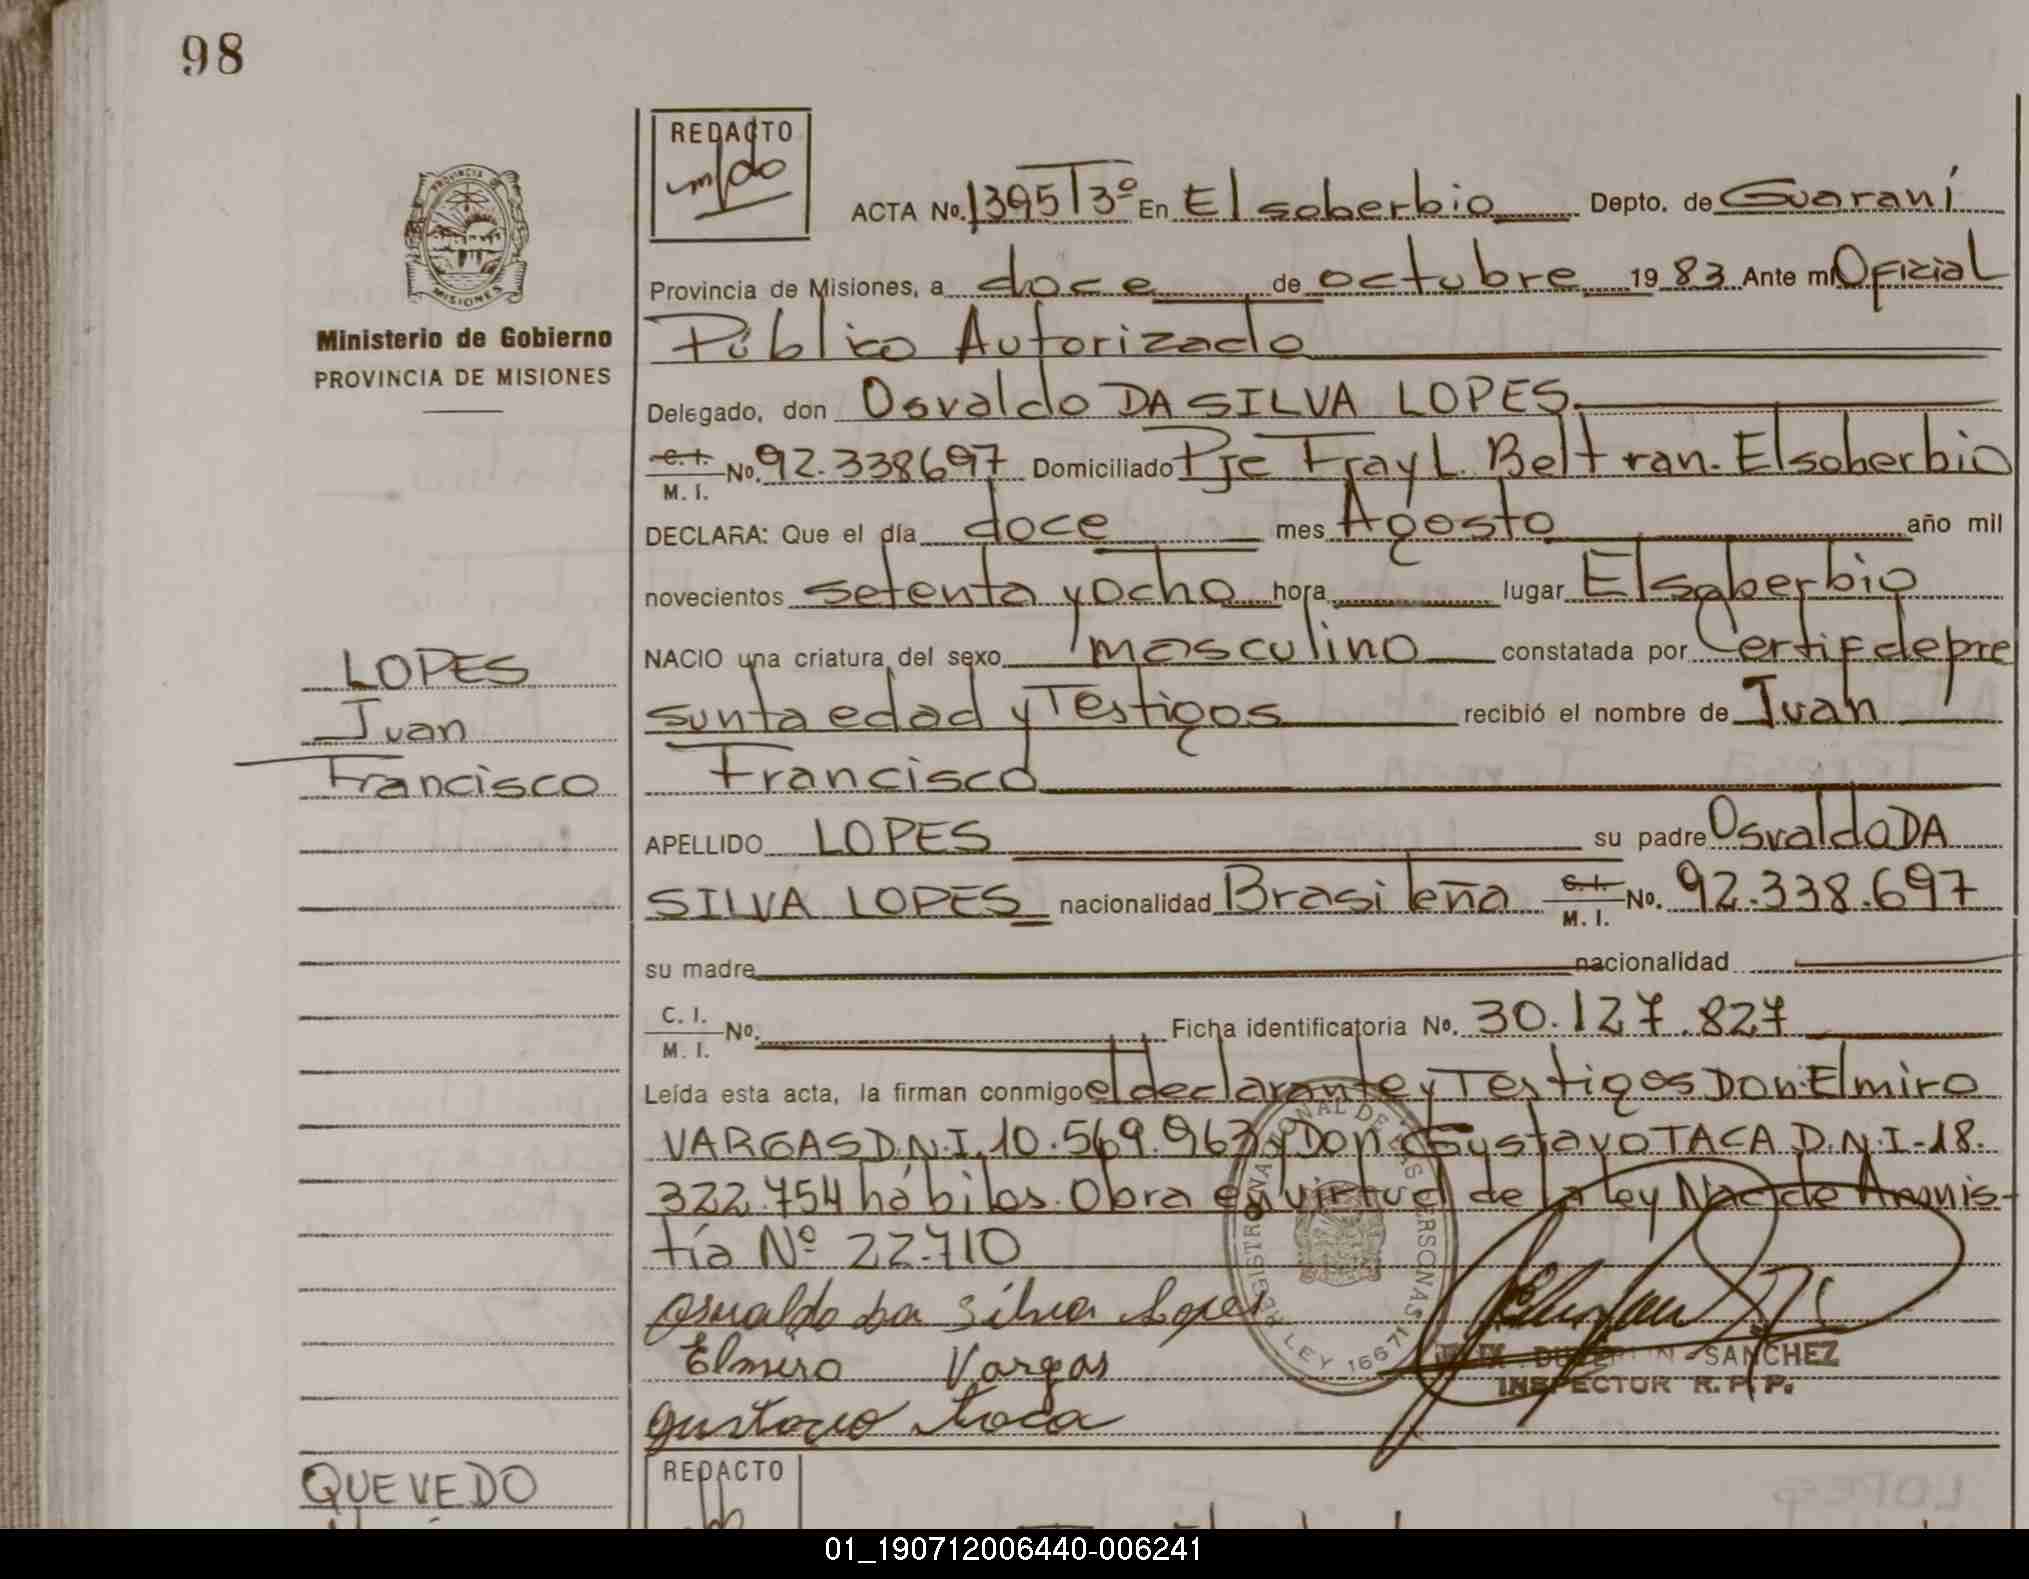 98
REDACTO
ACTA No. 1395 T3º En El soberbio Depto. de Guaraní
Provincia de Misiones, a doce de octubre 19 83 Ante mi Oficial
Público Autorizado
Delegado, don Osvaldo DA SILVA LOPES
C. I. M. I. No. 92.338697 Domiciliado Pje Fray L. Beltran. El soberbio
DECLARA: Que el día doce mes Agosto año mil
novecientos setenta y ocho hora lugar El soberbio
NACIO una criatura del sexo masculino constatada por Certif de pre
sunta edad y Testigos recibió el nombre de Juan
Francisco
APELLIDO LOPES su padre Osvaldo DA
SILVA LOPES nacionalidad Brasileña C. I. M. I. No. 92.338.697
su madre nacionalidad
C. I. M. I. No. Ficha identificatoria No. 30.127.827
Leída esta acta, la firman conmigo el declarante y Testigos Don Elmiro
VARGAS D.N.I. 10.569.963 y Don Gustavo TACA D.N.I-18.
322.754 hábiles. Obra en virtud de la ley Nac de Amnis-
tía Nº 22.710
Osvaldo da Silva Lopes
Elmiro Vargas
Gustavo Taca
REGISTRO NACIONAL DE LAS PERSONAS
LEY 16671
SANCHEZ
INSPECTOR R. P. P.
PROVINCIA DE
MISIONES
Ministerio de Gobierno
PROVINCIA DE MISIONES
LOPES
Juan
Francisco
QUEVEDO
REDACTO
01_190712006440-006241